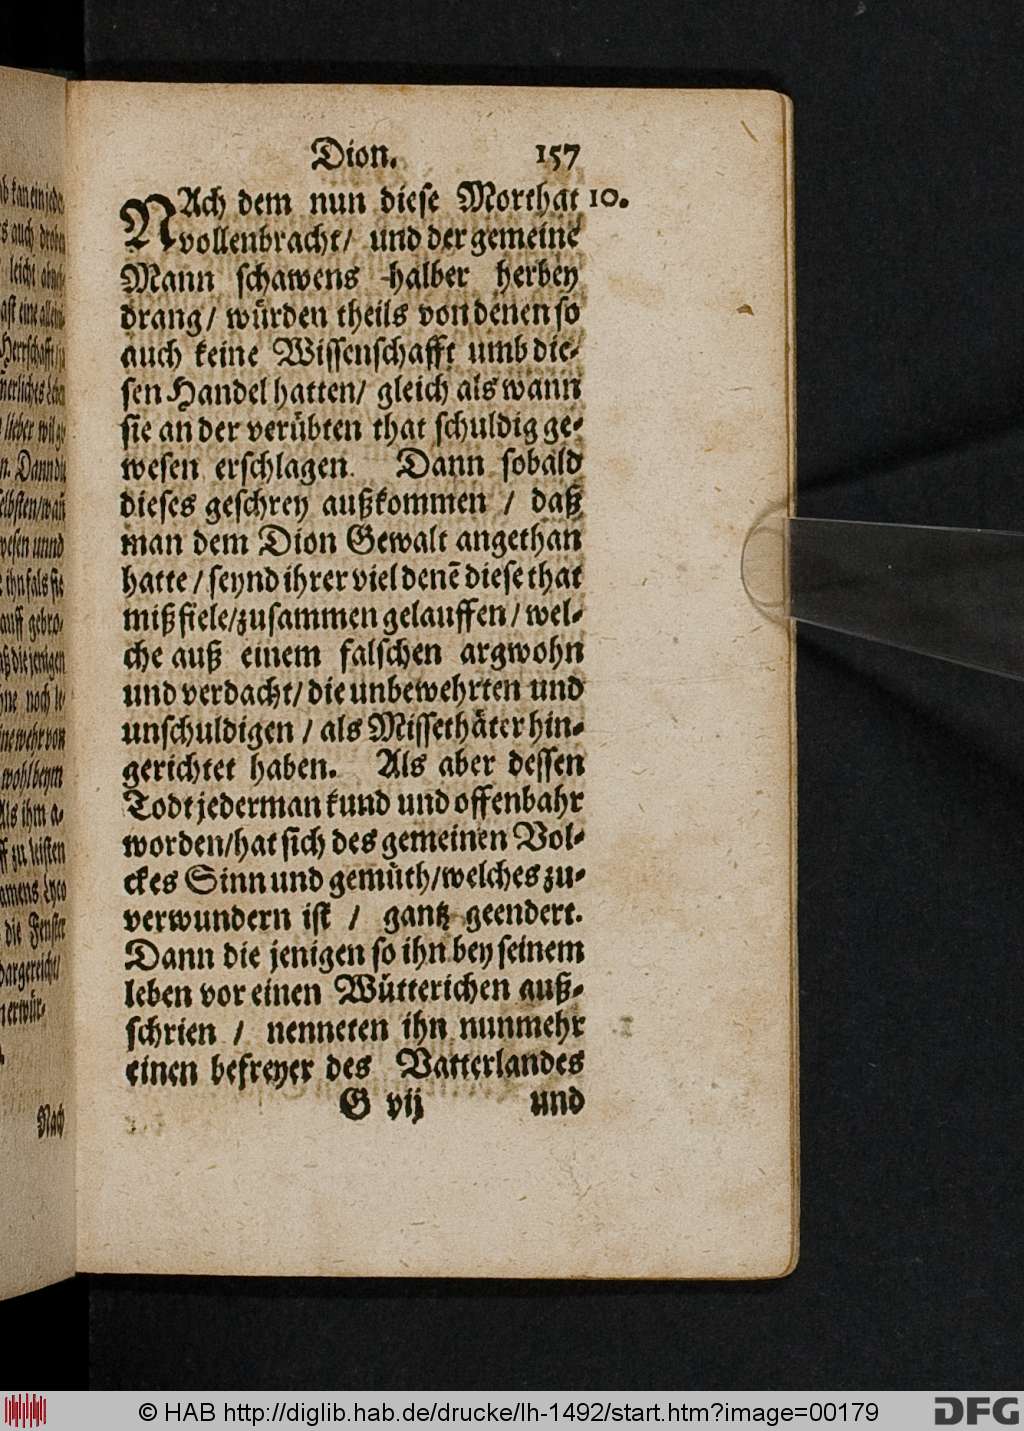 Dion. 157
NAch dem nun diese Morthat 10.
vollenbracht/ und der gemeine
Mann schawens halber herbey
drang/ würden theils von denen so
auch keine Wissenschafft umb die-
sen Handel hatten/ gleich als wann
sie an der verübten that schuldig ge-
wesen erschlagen. Dann sobald
dieses geschrey außkommen / daß
man dem Dion Gewalt angethan
hatte / seynd ihrer viel denē diese that
mißfiele/zusammen gelauffen / wel-
che auß einem falschen argwohn
und verdacht/ die unbewehrten und
unschuldigen / als Missethäter hin-
gerichtet haben. Als aber dessen
Todt jederman kund und offenbahr
worden/hat sich des gemeinen Vol-
ckes Sinn und gemüth/welches zu-
verwundern ist / gantz geendert.
Dann die jenigen so ihn bey seinem
leben vor einen Wütterichen auß-
schrien / nenneten ihn nunmehr
einen befreyer des Vatterlandes
G vij und
Nach
© HAB http://diglib.hab.de/drucke/lh-1492/start.htm?image=00179
DFG